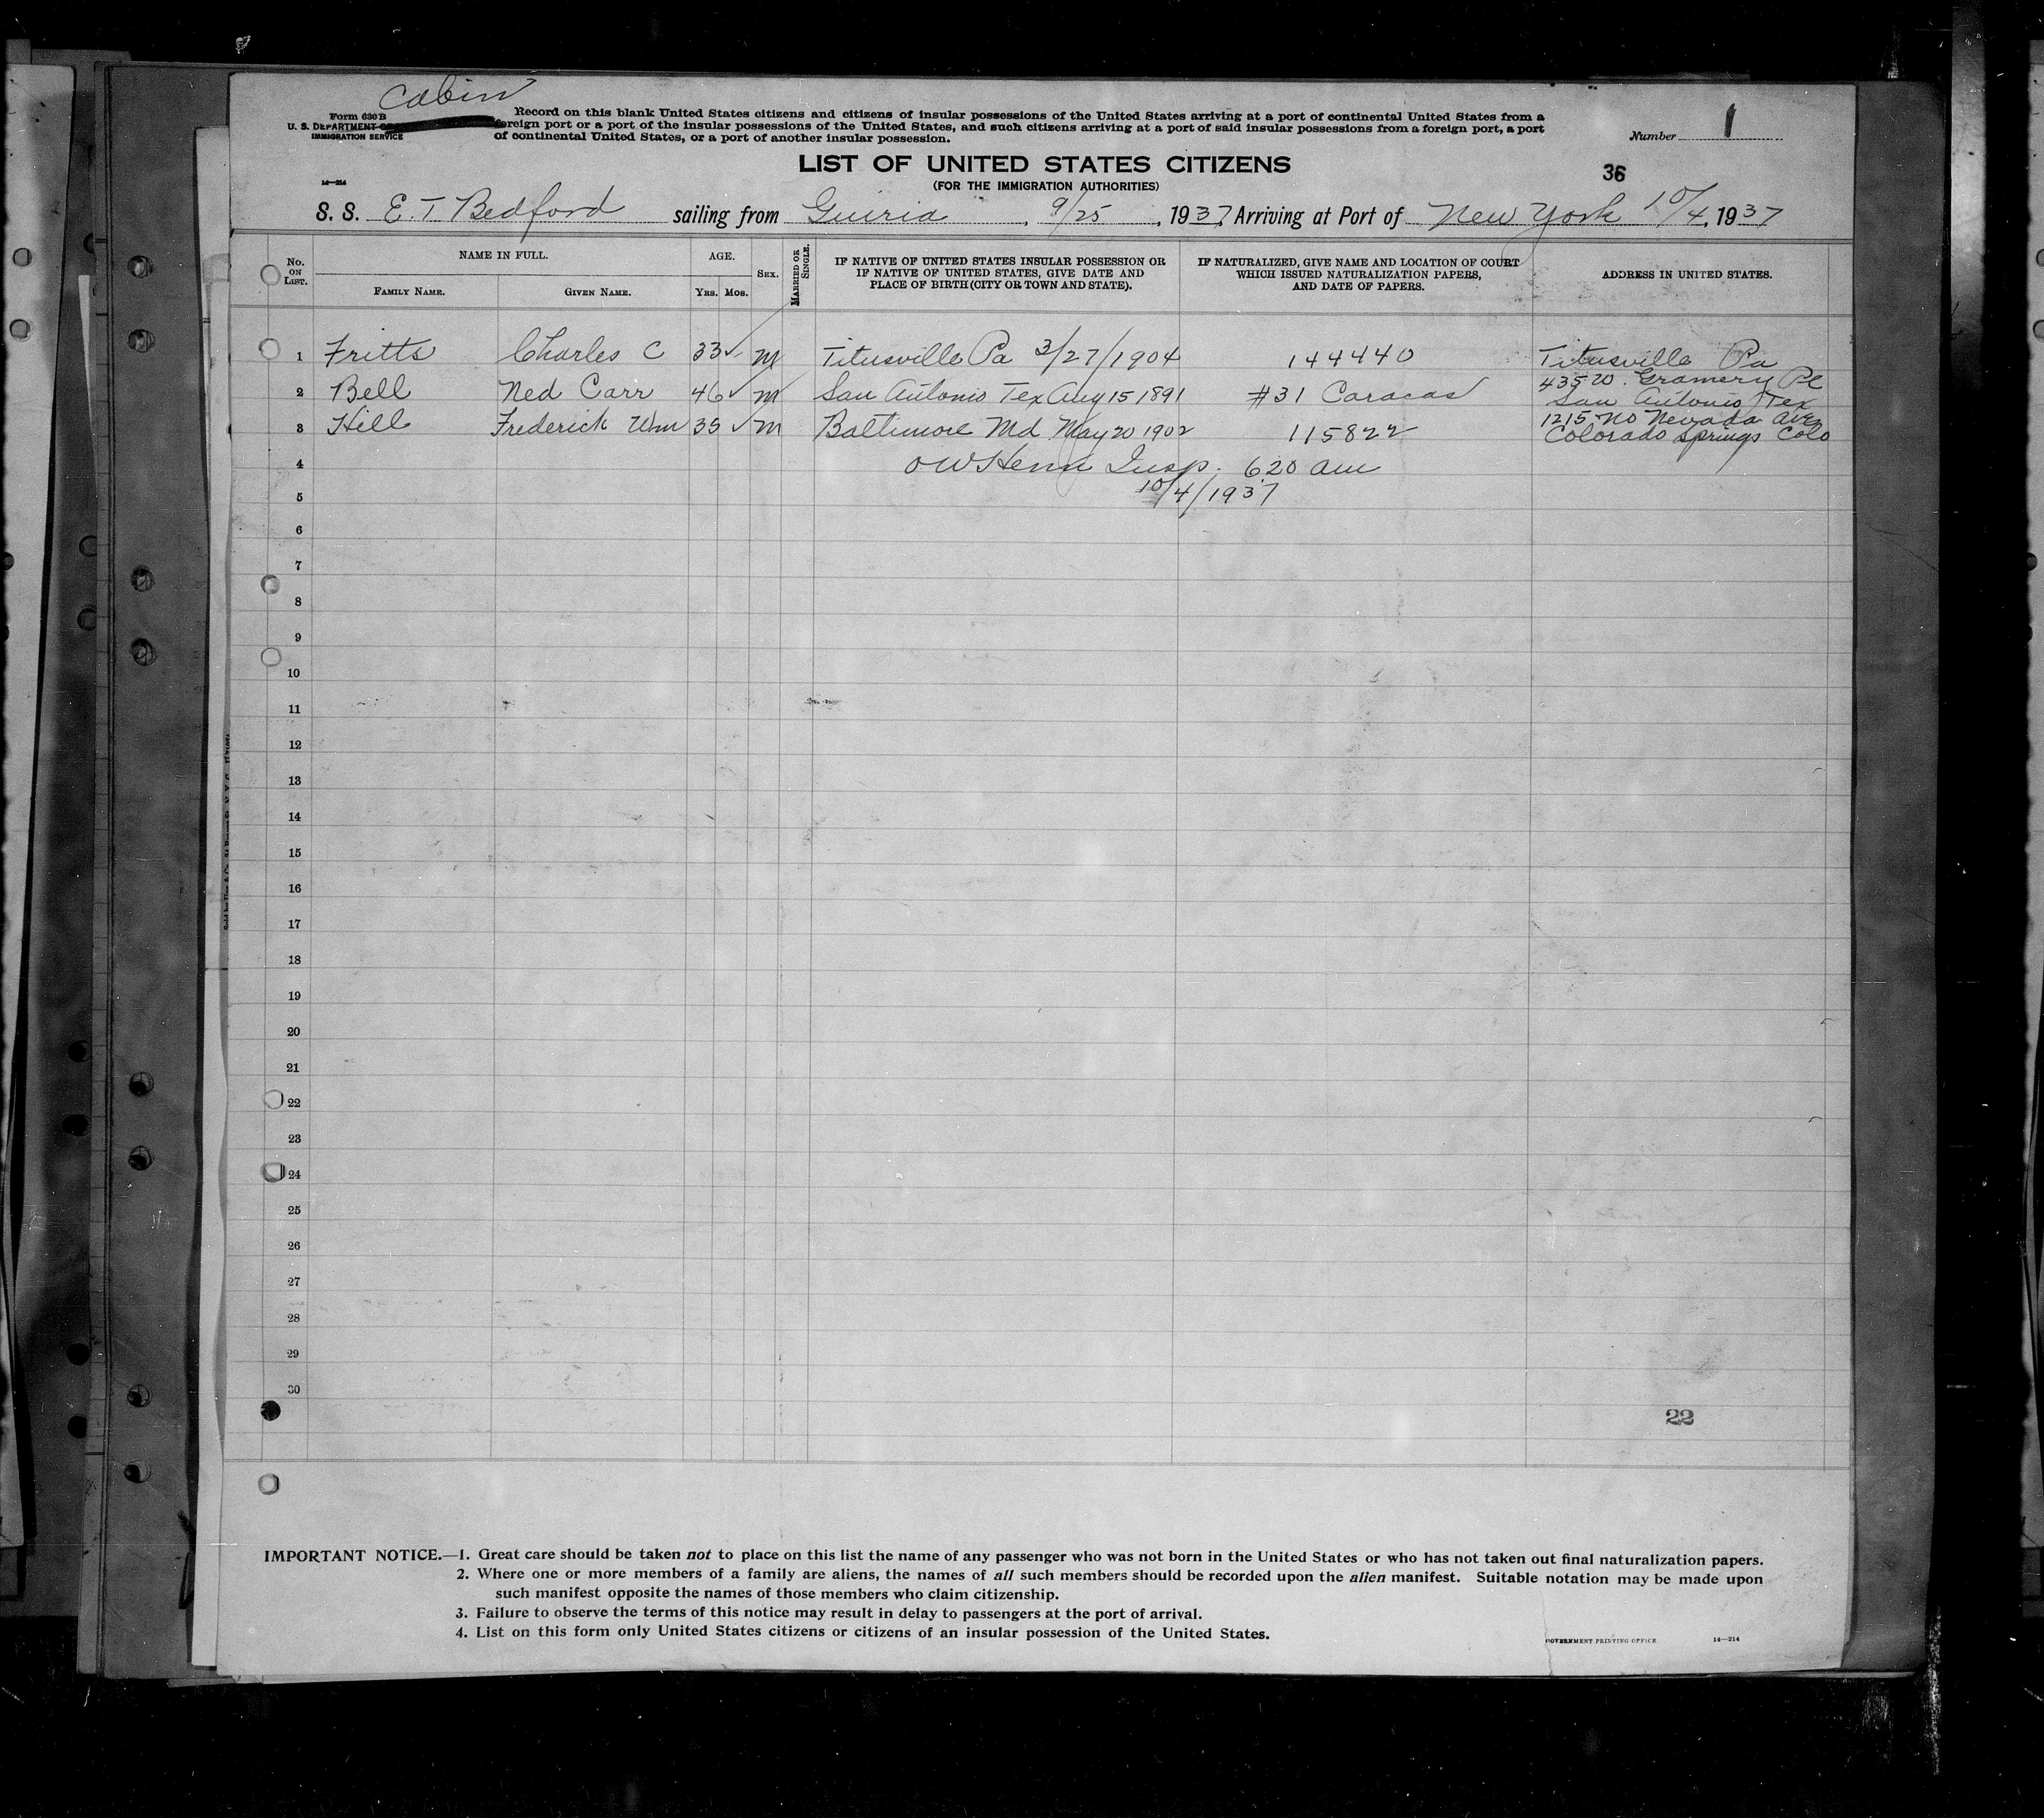 Cabin
Form 630 B
U. S. DEPARTMENT OF
IMMIGRATION SERVICE
Record on this blank United States citizens and citizens of insular possessions of the United States arriving at a port of continental United States from a
foreign port or a port of the insular possessions of the United States, and such citizens arriving at a port of said insular possessions from a foreign port, a port
of continental United States, or a port of another insular possession.
Number 1
LIST OF UNITED STATES CITIZENS
(FOR THE IMMIGRATION AUTHORITIES)
36
14—214
S. S. E. T Bedford sailing from Guiria, 9/25, 1937, Arriving at Port of New York 10/4, 1937
No. ON LIST.
NAME IN FULL.
FAMILY NAME.
GIVEN NAME.
AGE.
YRS. MOS.
SEX.
MARRIED OR SINGLE.
IF NATIVE OF UNITED STATES INSULAR POSSESSION OR
IF NATIVE OF UNITED STATES, GIVE DATE AND
PLACE OF BIRTH (CITY OR TOWN AND STATE).
IF NATURALIZED, GIVE NAME AND LOCATION OF COURT
WHICH ISSUED NATURALIZATION PAPERS,
AND DATE OF PAPERS.
ADDRESS IN UNITED STATES.
1 Fritts Charles C 33 ✓ m Titusville Pa 3/27/1904 144440 Titusville Pa
2 Bell Ned Carr 46 ✓ m San Antonio Tex Aug 15 1891 #31 Caracas 435 W. Gramery Pl
San Antonio Tex
3 Hill Frederick Wm 35 ✓ m Baltimore Md May 20 1902 115822 1215 No Nevada Ave
Colorado Springs Colo
4 OW Insp. 620 am
5 10/4/1937
6
7
8
9
10
11
12
13
14
15
16
17
18
19
20
21
22
23
24
25
26
27
28
29
30
22
IMPORTANT NOTICE.—1. Great care should be taken not to place on this list the name of any passenger who was not born in the United States or who has not taken out final naturalization papers.
2. Where one or more members of a family are aliens, the names of all such members should be recorded upon the alien manifest. Suitable notation may be made upon
such manifest opposite the names of those members who claim citizenship.
3. Failure to observe the terms of this notice may result in delay to passengers at the port of arrival.
4. List on this form only United States citizens or citizens of an insular possession of the United States.
GOVERNMENT PRINTING OFFICE 14—214